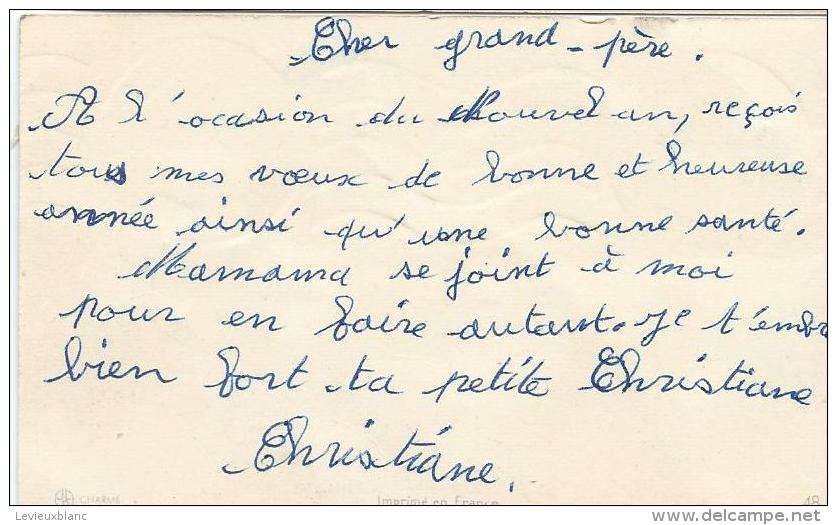 Cher grand-père.
A l'ocasion du Nouvel an, reçois
tous mes vœux de bonne et heureuse
année ainsi qu'une bonne santé.
Mamama se joint à moi
pour en faire autant. Je t'embr
bien fort ta petite Christiane
Christiane.
CHARME Imprimé en France 48
Levieuxblanc www.delcampe.net